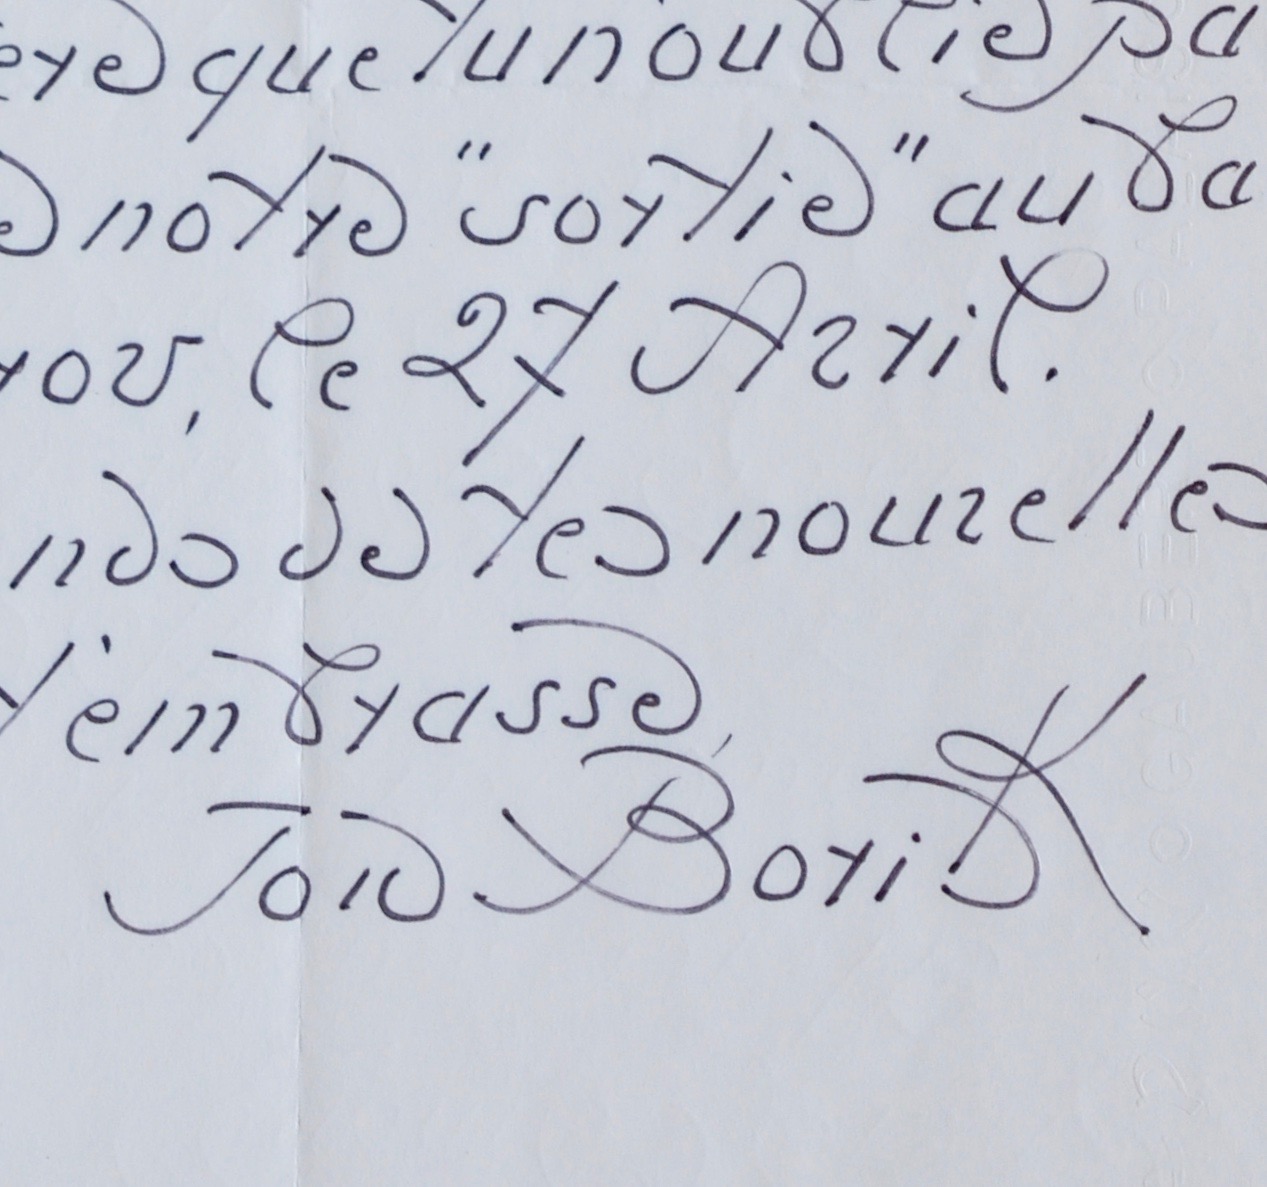 ere que tu n'oublie pa
e notre "sortie" au Ba
le 27 Avril.
nds de tes nouvelles
t'embrasse,
Ton Boris K